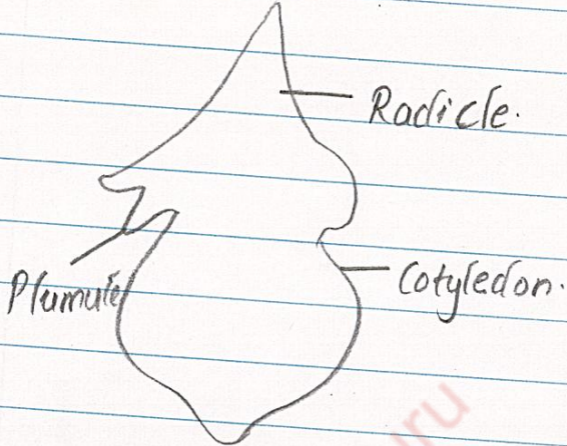 Radicle.
Plumule
Cotyledon.